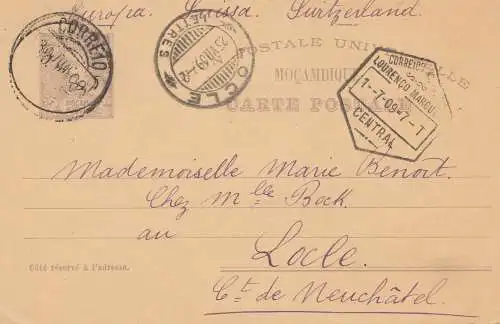 Europa. Suissa. Suitzerland.
POSTALE UNIVERSELLE
MOÇAMBIQUE
CARTE POSTALE
CORREIO
LOCLE
25.VII.09
CORREIO
LOURENÇO MARQUES
1-7-09-7-T
CENTRAL
Mademoiselle Marie Benoit.
Chez Mlle Bock.
au
Locle.
Côté réservé à l'adresse.
Ct. de Neuchâtel.